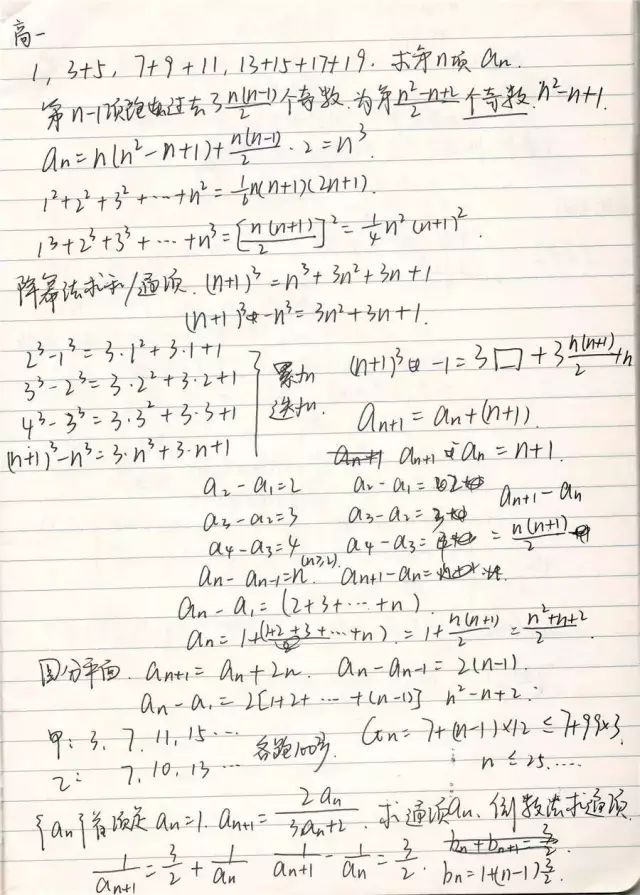 高一
1, 3+5, 7+9+11, 13+15+17+19. 求第n项 an.
第n-1项 过去 n(n-1)/2 个奇数. 为第 (n²-n+2)/2 个奇数. n²-n+1.
an = n(n²-n+1) + n(n-1)/2 · 2 = n³.
1²+2²+3²+⋯+n² = 1/6 n(n+1)(2n+1).
1³+2³+3³+⋯+n³ = [n(n+1)/2]² = 1/4 n²(n+1)².
降幂法求和/通项. (n+1)³ = n³+3n²+3n+1
(n+1)³-n³ = 3n²+3n+1.
2³-1³ = 3·1²+3·1+1
3³-2³ = 3·2²+3·2+1
4³-3³ = 3·3²+3·3+1
(n+1)³-n³ = 3·n³+3·n+1
累加
迭加.
(n+1)³-1 = 3□+3 n(n+1)/2 +n
an+1 = an+(n+1).
an+1 an+1 an = n+1.
a2-a1=2 a2-a1= 2 an+1-an
a3-a2=3 a3-a2= 3 = n(n+1)/2
a4-a3=4 a4-a3=
an-an-1=n (n≥2). an+1-an=
an-a1=(2+3+⋯+n).
an=1+(1+2+3+⋯+n). =1+ n(n+1)/2 = (n²+n+2)/2.
圆分平面. an+1=an+2n. an-an-1=2(n-1).
an-a1=2[1+2+⋯+(n-1)] n²-n+2.
甲: 3, 7, 11, 15⋯
乙: 7, 10, 13⋯
各 100 Gn=7+(n-1)×12≤7+99×3
n≤25.⋯
{an}首项是an=1. an+1= 2an/(3an+2). 求通项an. 倒数法求通项.
1/an+1 = 3/2 + 1/an 1/an+1 - 1/an = 3/2. bn+bn+1=3/2
bn=1+(n-1)3/2.